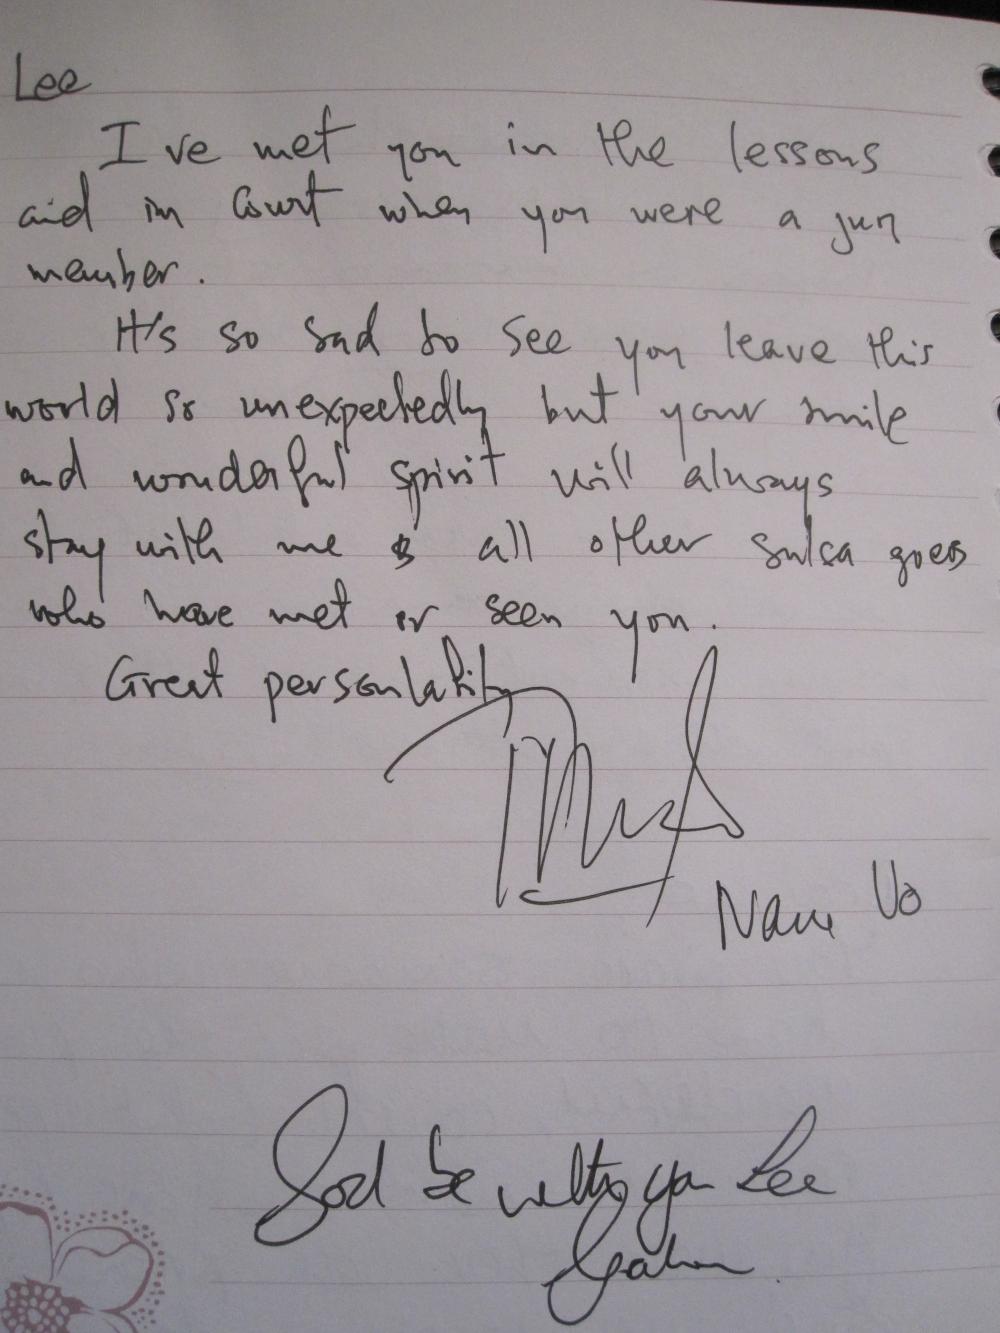 Lee
I've met you in the lessons
and in Court when you were a jury
member.
It's so sad to see you leave this
world so unexpectedly but your smile
and wonderful spirit will always
stay with me & all other salsa goers
who have met or seen you.
Great personlality
Nam Vo
God be with you Lee